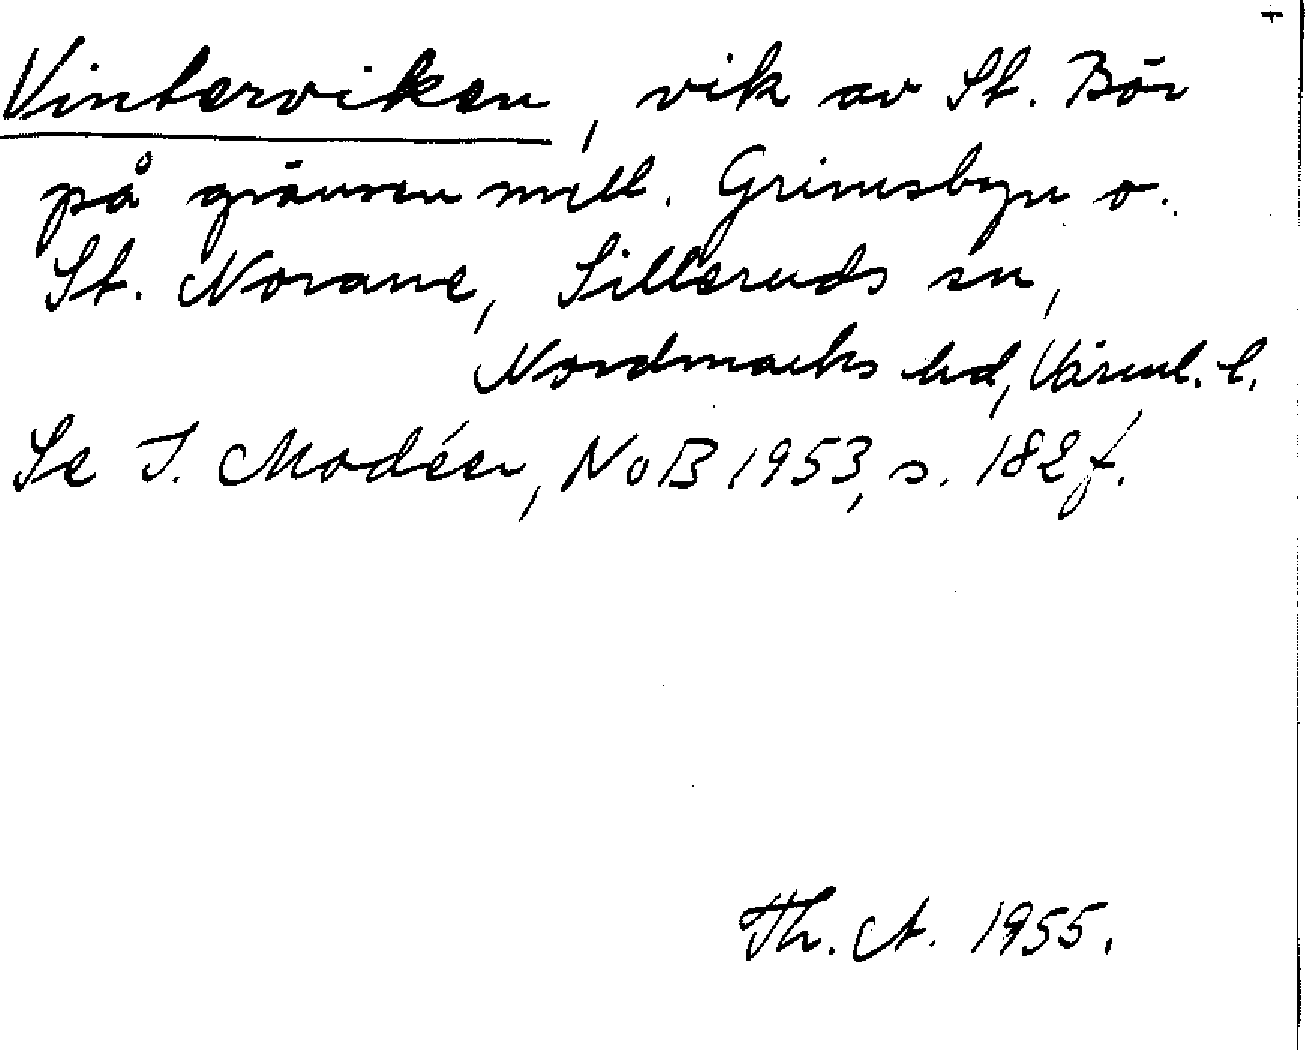 +
Vinterviken, vik av St. Bör
på gränsen mell. Grimsbyn o.
St. Norane, Silleruds sn,
Nordmarks hd, Värml. l.
Se I. Modéer, NoB 1953, s. 182 f.
Th. A. 1955.